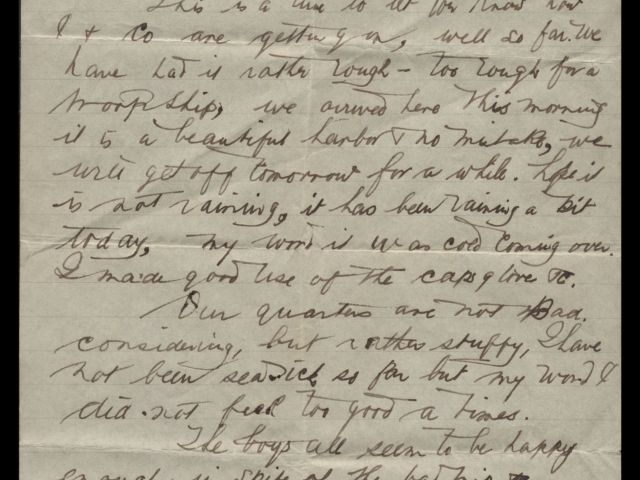 This is a line to let you know how
I & Co are getting on, well so far. We
have had it rather rough - too rough for a
troopship, we arrived here this morning
it is a beautiful harbor & no mistake, we
will get off tomorrow for a while. hope it
is not raining, it has been raining a bit
today, my word it was cold coming over.
I made good use of the cap glove &c.
Our quarters are not bad.
considering, but rather stuffy, I have
not been seasick so far but my word I
did not feel too good a times.
The boys all seem to be happy
enough in spite of the bad trip